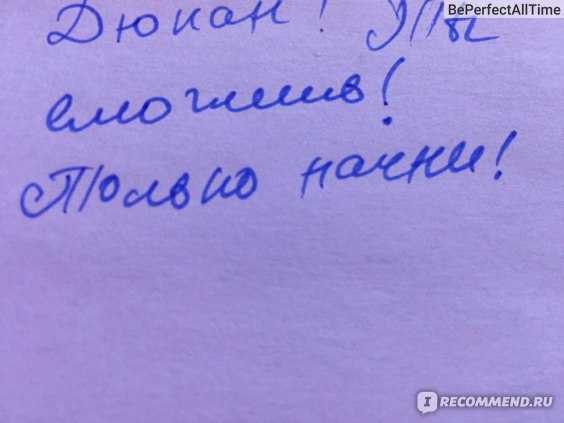 BePerfectAllTime
Дюкан! Ты
сможешь!
Только начни!
I RECOMMEND.RU